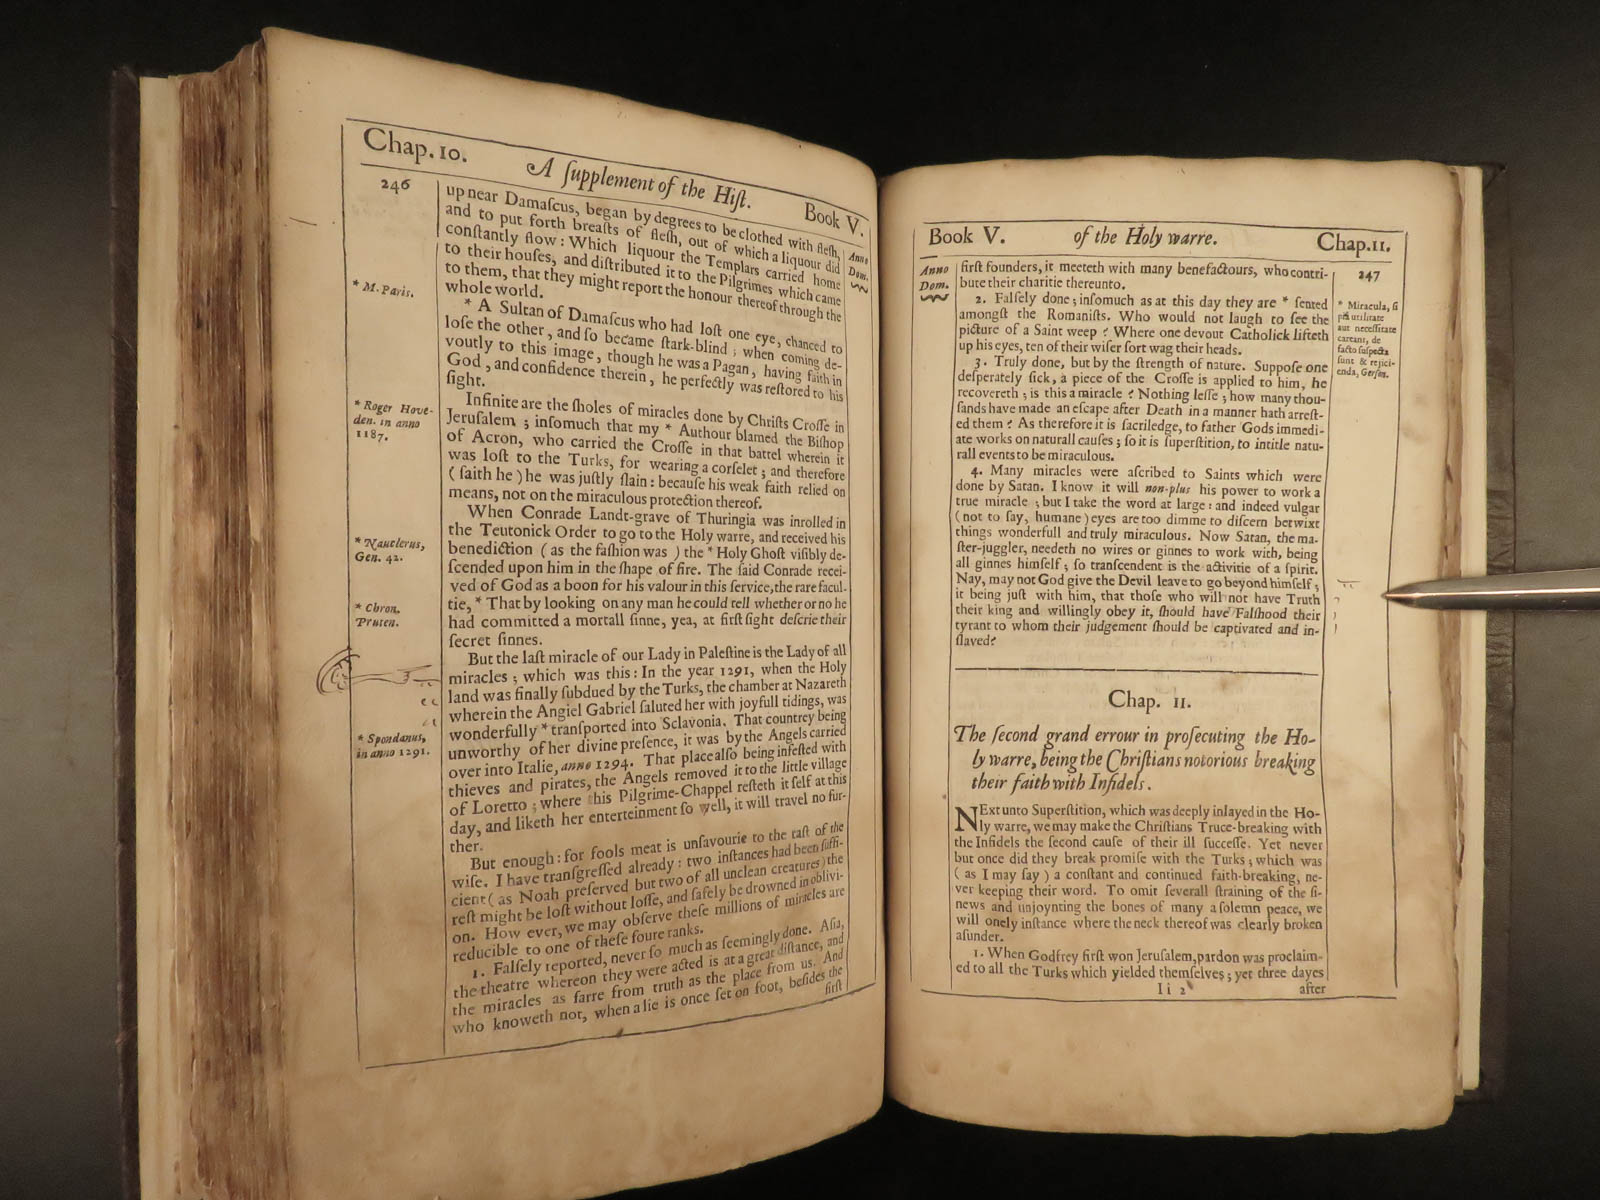 Chap. 10.
A ſupplement of the Hiſt.
Book V.
246
Anno
Dom.
up near Damaſcus, began by degrees to be clothed with fleſh,
and to put forth breaſts of fleſh, out of which a liquour did
conſtantly flow: Which liquour the Templars carried home
to their houſes, and diſtributed it to the Pilgrimes which came
to them, that they might report the honour thereof through the
whole world.
* M. Paris.
* A Sultan of Damaſcus who had loſt one eye, chanced to
loſe the other, and ſo became ſtark-blind; when coming de-
voutly to this image, though he was a Pagan, having faith in
God, and confidence therein, he perfectly was reſtored to his
ſight.
* Roger Hove-
den. in anno
1187.
Infinite are the ſholes of miracles done by Chriſts Croſſe in
Jeruſalem; inſomuch that my * Authour blamed the Biſhop
of Acron, who carried the Croſſe in that battel wherein it
was loſt to the Turks, for wearing a corſelet; and therefore
(ſaith he) he was juſtly ſlain: becauſe his weak faith relied on
means, not on the miraculous protection thereof.
* Nauclerus,
Gen. 42.
* Chron.
Pruten.
When Conrade Landt-grave of Thuringia was inrolled in
the Teutonick Order to go to the Holy warre, and received his
benediction (as the faſhion was) the * Holy Ghoſt viſibly de-
ſcended upon him in the ſhape of fire. The ſaid Conrade recei-
ved of God as a boon for his valour in this ſervice, the rare facul-
tie, * That by looking on any man he could tell whether or no he
had committed a mortall ſinne, yea, at firſt ſight deſcrie their
ſecret ſinnes.
* Spondanus,
in anno 1291.
But the laſt miracle of our Lady in Paleſtine is the Lady of all
miracles; which was this: In the year 1291, when the Holy
land was finally ſubdued by the Turks, the chamber at Nazareth
wherein the Angiel Gabriel ſaluted her with joyfull tidings, was
wonderfully * tranſported into Sclavonia. That countrey being
unworthy of her divine preſence, it was by the Angels carried
over into Italie, anno 1294. That place alſo being infeſted with
thieves and pirates, the Angels removed it to the little village
of Loretto; where this Pilgrime-Chappel reſteth it ſelf at this
day, and liketh her enterteinment ſo well, it will travel no fur-
ther.
But enough: for fools meat is unſavourie to the taſt of the
wiſe. I have tranſgreſſed already: two inſtances had been ſuffi-
cient (as Noah preſerved but two of all unclean creatures) the
reſt might be loſt without loſſe, and ſafely be drowned in oblivi-
on. How ever, we may obſerve theſe millions of miracles are
reducible to one of theſe foure ranks.
1. Falſely reported, never ſo much as ſeemingly done. Aſia,
the theatre whereon they were acted is at a great diſtance, and
the miracles as farre from truth as the place from us. And
who knoweth not, when a lie is once ſet on foot, beſides the
firſt
Book V.
of the Holy warre.
Chap. 11.
Anno
Dom.
247
firſt founders, it meeteth with many benefactours, who contri-
bute their charitie thereunto.
* Miracula, ſi
piâ utilitate
aut neceſſitate
careant, de
facto ſuſpecta
ſunt & rejici-
enda, Gerſon.
2. Falſely done; inſomuch as at this day they are * ſented
amongſt the Romaniſts. Who would not laugh to ſee the
picture of a Saint weep? Where one devout Catholick lifteth
up his eyes, ten of their wiſer ſort wag their heads.
3. Truly done, but by the ſtrength of nature. Suppoſe one
deſperately ſick, a piece of the Croſſe is applied to him, he
recovereth; is this a miracle? Nothing leſſe; how many thou-
ſands have made an eſcape after Death in a manner hath arreſt-
ed them? As therefore it is ſacriledge, to father Gods immedi-
ate works on naturall cauſes; ſo it is ſuperſtition, to intitle natu-
rall events to be miraculous.
4. Many miracles were aſcribed to Saints which were
done by Satan. I know it will non-plus his power to work a
true miracle; but I take the word at large: and indeed vulgar
(not to ſay, humane) eyes are too dimme to diſcern betwixt
things wonderfull and truly miraculous. Now Satan, the ma-
ſter-juggler, needeth no wires or ginnes to work with, being
all ginnes himſelf; ſo tranſcendent is the activitie of a ſpirit.
Nay, may not God give the Devil leave to go beyond himſelf;
it being juſt with him, that thoſe who will not have Truth
their king and willingly obey it, ſhould have Falſhood their
tyrant to whom their judgement ſhould be captivated and in-
ſlaved?
Chap. 11.
The ſecond grand errour in proſecuting the Ho-
ly warre, being the Chriſtians notorious breaking
their faith with Infidels.
NExt unto Superſtition, which was deeply inlayed in the Ho-
ly warre, we may make the Chriſtians Truce-breaking with
the Infidels the ſecond cauſe of their ill ſucceſſe. Yet never
but once did they break promiſe with the Turks; which was
(as I may ſay) a conſtant and continued faith-breaking, ne-
ver keeping their word. To omit ſeverall ſtraining of the ſi-
news and unjoynting the bones of many a ſolemn peace, we
will onely inſtance where the neck thereof was clearly broken
aſunder.
1. When Godfrey firſt won Jeruſalem, pardon was proclaim-
ed to all the Turks which yielded themſelves; yet three dayes
Ii 2
after